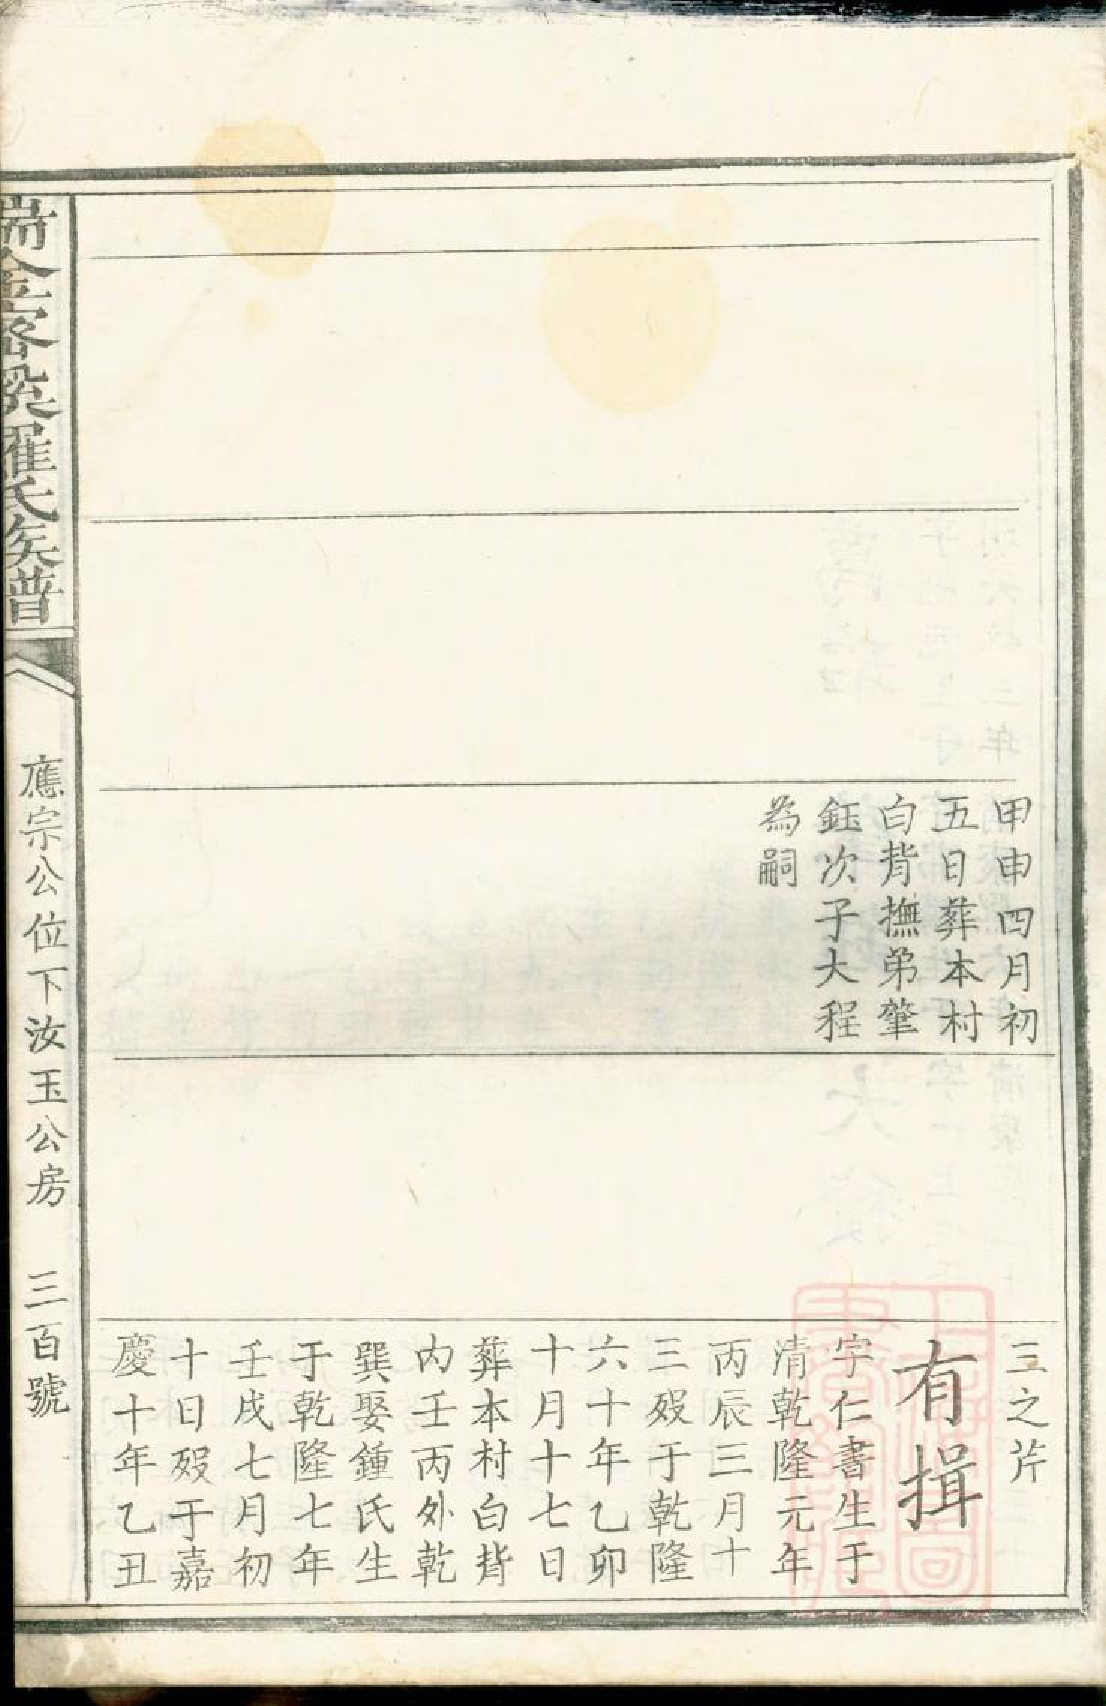 甲申四月初
五日葬本村
白背撫弟肇
鈺次子大程
為嗣
三之芹
有揖
字仁書生于
清乾隆元年
丙辰三月十
三歿于乾隆
六十年乙卯
十月十七日
葬本村白背
內壬丙外乾
巽娶鍾氏生
于乾隆七年
壬戌七月初
十日歿于嘉
慶十年乙丑
瑞金密溪羅氏族譜
應宗公位下汝玉公房 三百號